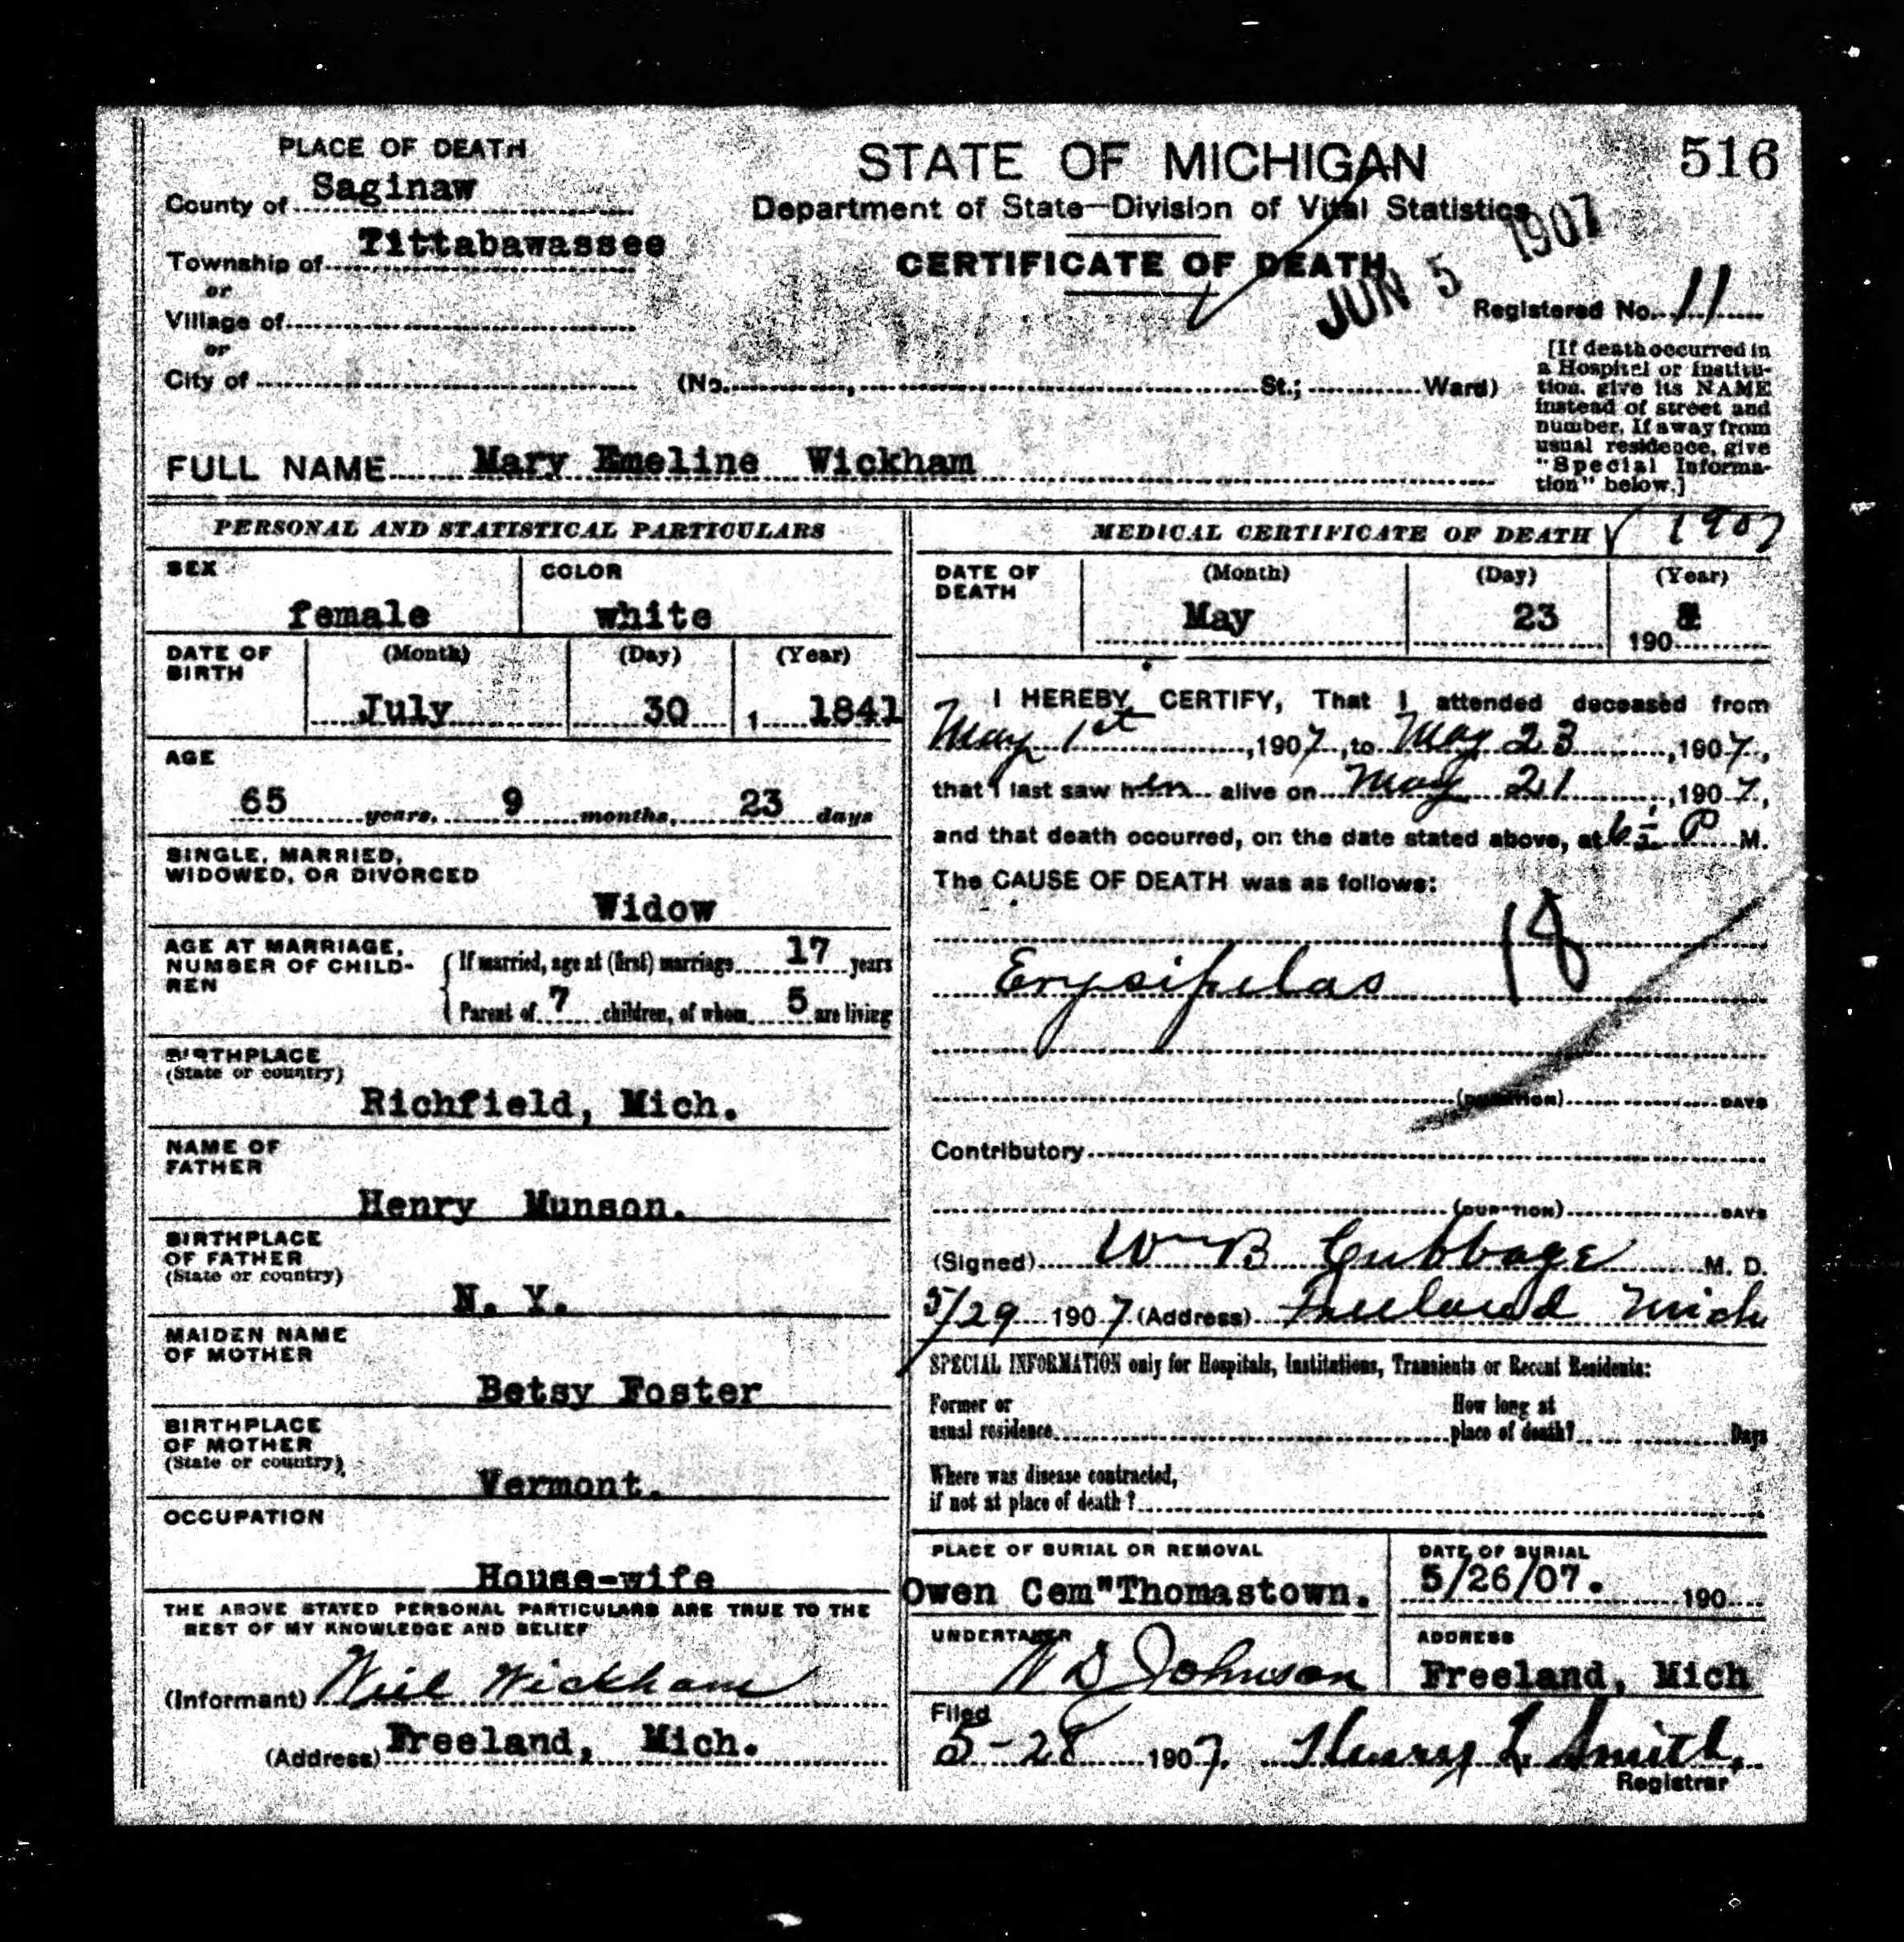 PLACE OF DEATH
County of Saginaw
Township of Tittabawassee
or
Village of
or
City of
STATE OF MICHIGAN
Department of State—Division of Vital Statistics
CERTIFICATE OF DEATH
516
JUN 5 1907
Registered No. 11
(No. , St.; Ward)
[If death occurred in
a Hospital or Institu-
tion, give its NAME
instead of street and
number. If away from
usual residence, give
"Special Informa-
tion" below.]
FULL NAME Mary Emeline Wickham
PERSONAL AND STATISTICAL PARTICULARS
SEX
female
COLOR
white
DATE OF
BIRTH
(Month) (Day) (Year)
July 30, 1841
AGE
65 years, 9 months, 23 days
SINGLE, MARRIED,
WIDOWED, OR DIVORCED
Widow
AGE AT MARRIAGE,
NUMBER OF CHILD-
REN
If married, age at (first) marriage 17 years
Parent of 7 children, of whom 5 are living
BIRTHPLACE
(State or country)
Richfield, Mich.
NAME OF
FATHER
Henry Munson.
BIRTHPLACE
OF FATHER
(State or country)
N. Y.
MAIDEN NAME
OF MOTHER
Betsy Foster
BIRTHPLACE
OF MOTHER
(State or country)
Vermont.
OCCUPATION
House-wife
THE ABOVE STATED PERSONAL PARTICULARS ARE TRUE TO THE
BEST OF MY KNOWLEDGE AND BELIEF
(Informant) Wickham
(Address) Freeland, Mich.
MEDICAL CERTIFICATE OF DEATH 1907
DATE OF
DEATH
(Month) (Day) (Year)
May 23 190
I HEREBY CERTIFY, That I attended deceased from
May 1st, 1907, to May 23, 1907,
that I last saw h alive on May 21, 1907,
and that death occurred, on the date stated above, at P M.
The CAUSE OF DEATH was as follows:
18
Erysipelas
(DURATION) DAYS
Contributory
(DURATION) DAYS
(Signed) Wm B Cubbage M. D.
5/29 1907 (Address) Freeland Mich
SPECIAL INFORMATION only for Hospitals, Institutions, Transients or Recent Residents:
Former or
usual residence
How long at
place of death? Days
Where was disease contracted,
if not at place of death?
PLACE OF BURIAL OR REMOVAL
Owen Cem"Thomastown.
DATE OF BURIAL
5/26/07. 190
UNDERTAKER
Johnson
ADDRESS
Freeland, Mich
Filed
5-28 1907. Henry L. Smith,
Registrar